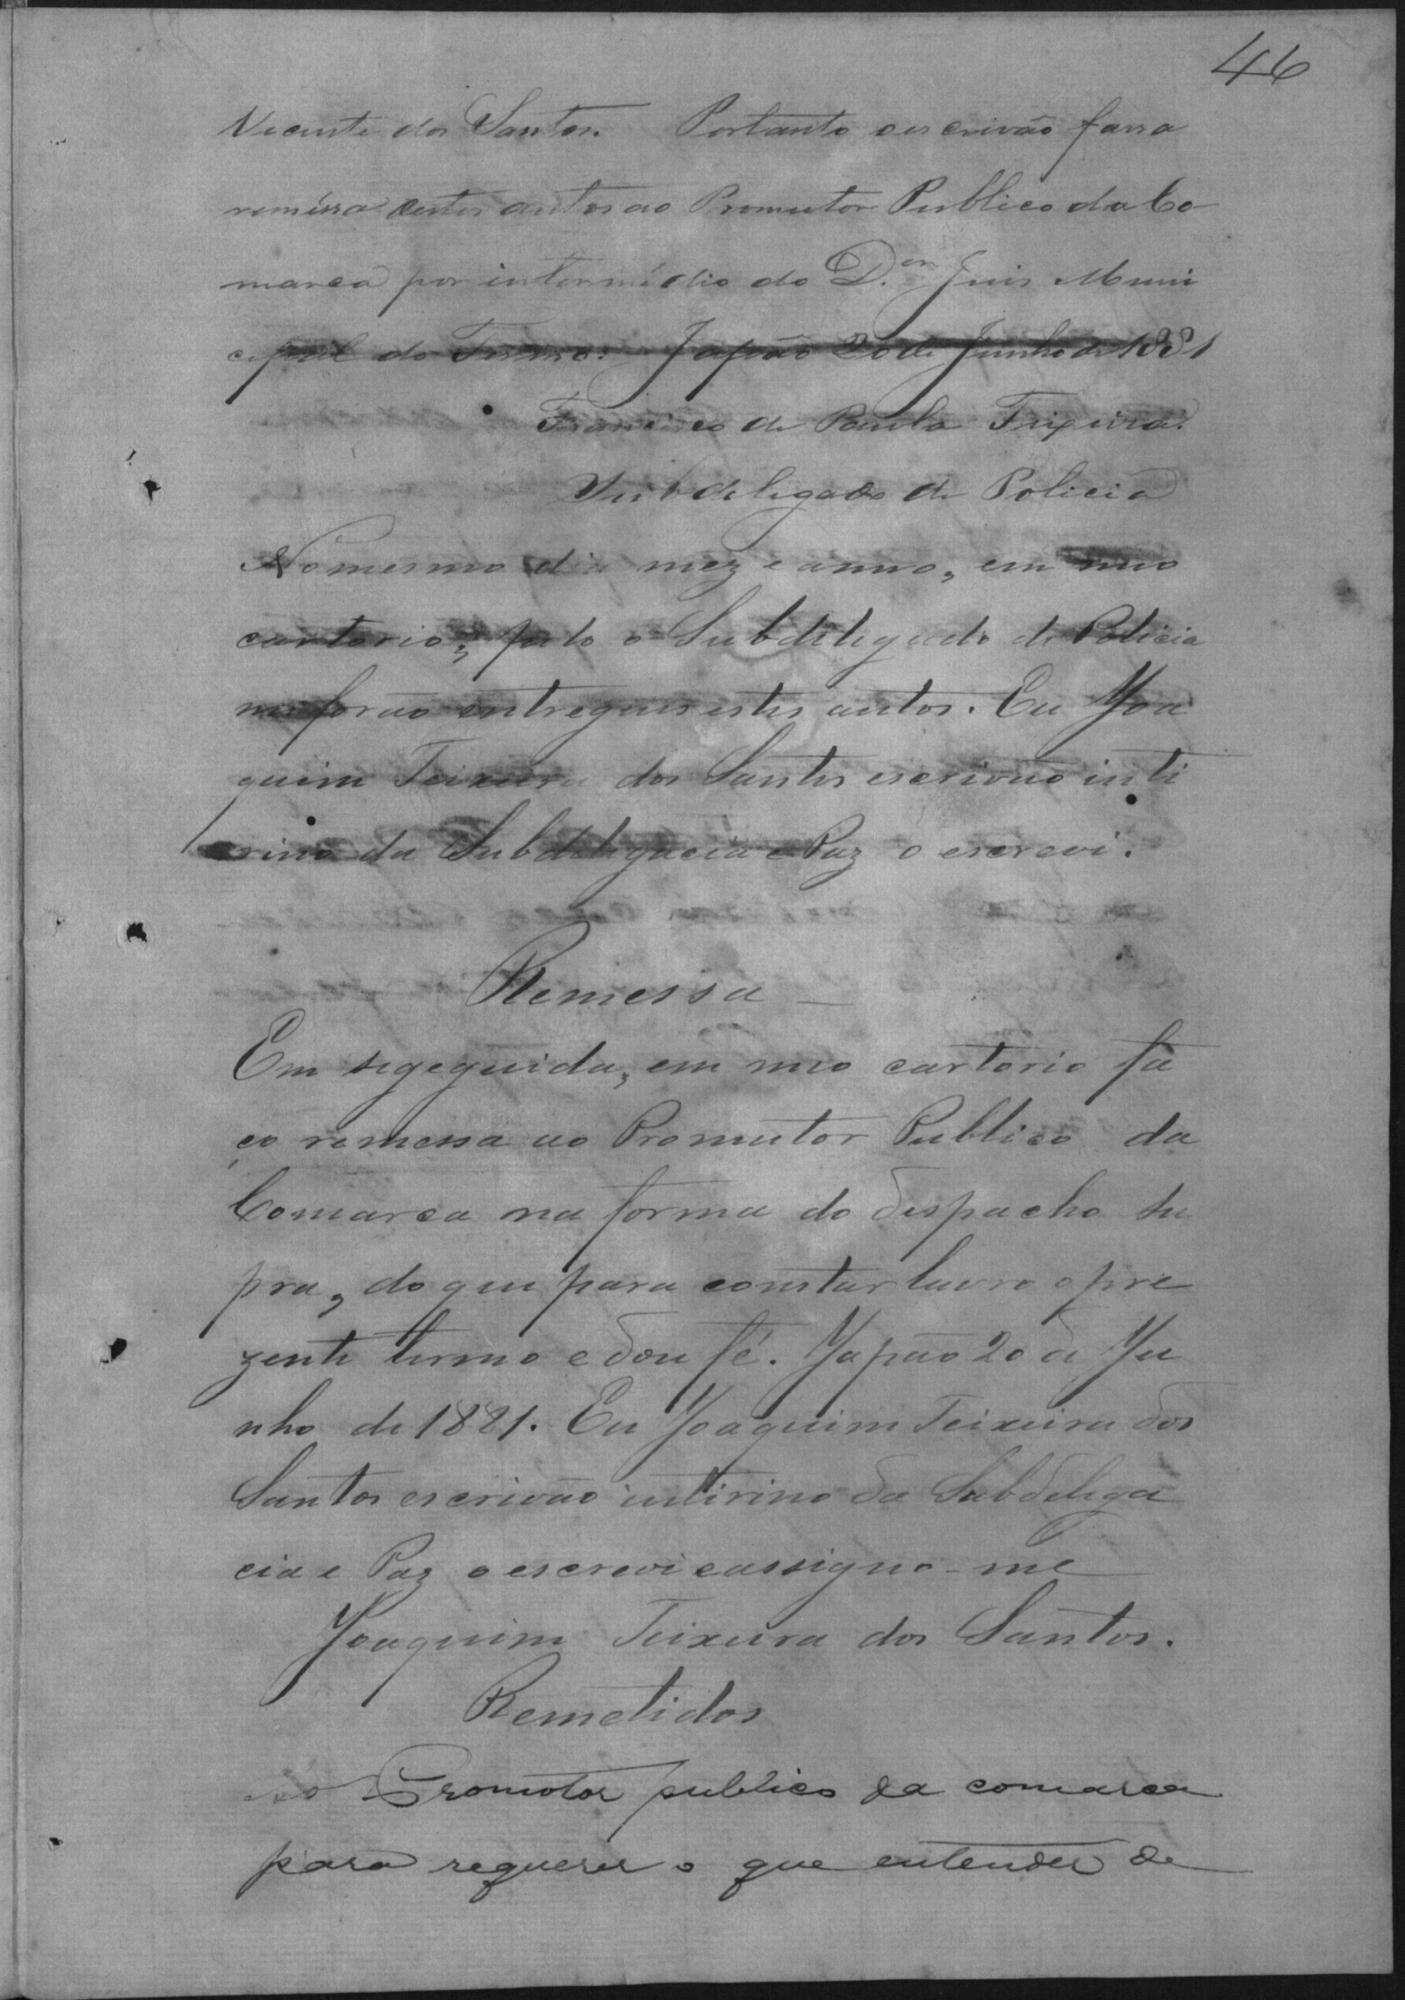 46
Vicente dos Santos. Portanto o escrivão fara
remessa destes autos ao Promutor Publico da Co-
marca por intermédio do D.or Juis Muni
cipal do Termo. Japão 20 de Junho de 1881
Francisco de Paula Teixeira.
Subdelegado de Policia
No mesmo dia mez e anno, em meo
cartorio, pelo o Subdelegado de Policia
me forão entregues estes autos. Eu Joa
quim Teixeira dos Santos escrivão inti
rino da Subdelegacia e Paz o escrevi.
Remessa
Em segeguida, em meo cartorio fa
ço remessa ao Promutor Publico da
Comarca na forma do despacho su
pra, do que para constar lavro o pre
zente termo e dou fé. Japão 20 de Ju
nho de 1881. Eu Joaquim Teixeira dos
Santos escrivão intirino da Subdelega
cia e Paz o escrevi e assigno-me
Joaquim Teixeira dos Santos.
Remetidos
ao Promotor publico da comarca
para requerer o que entender de